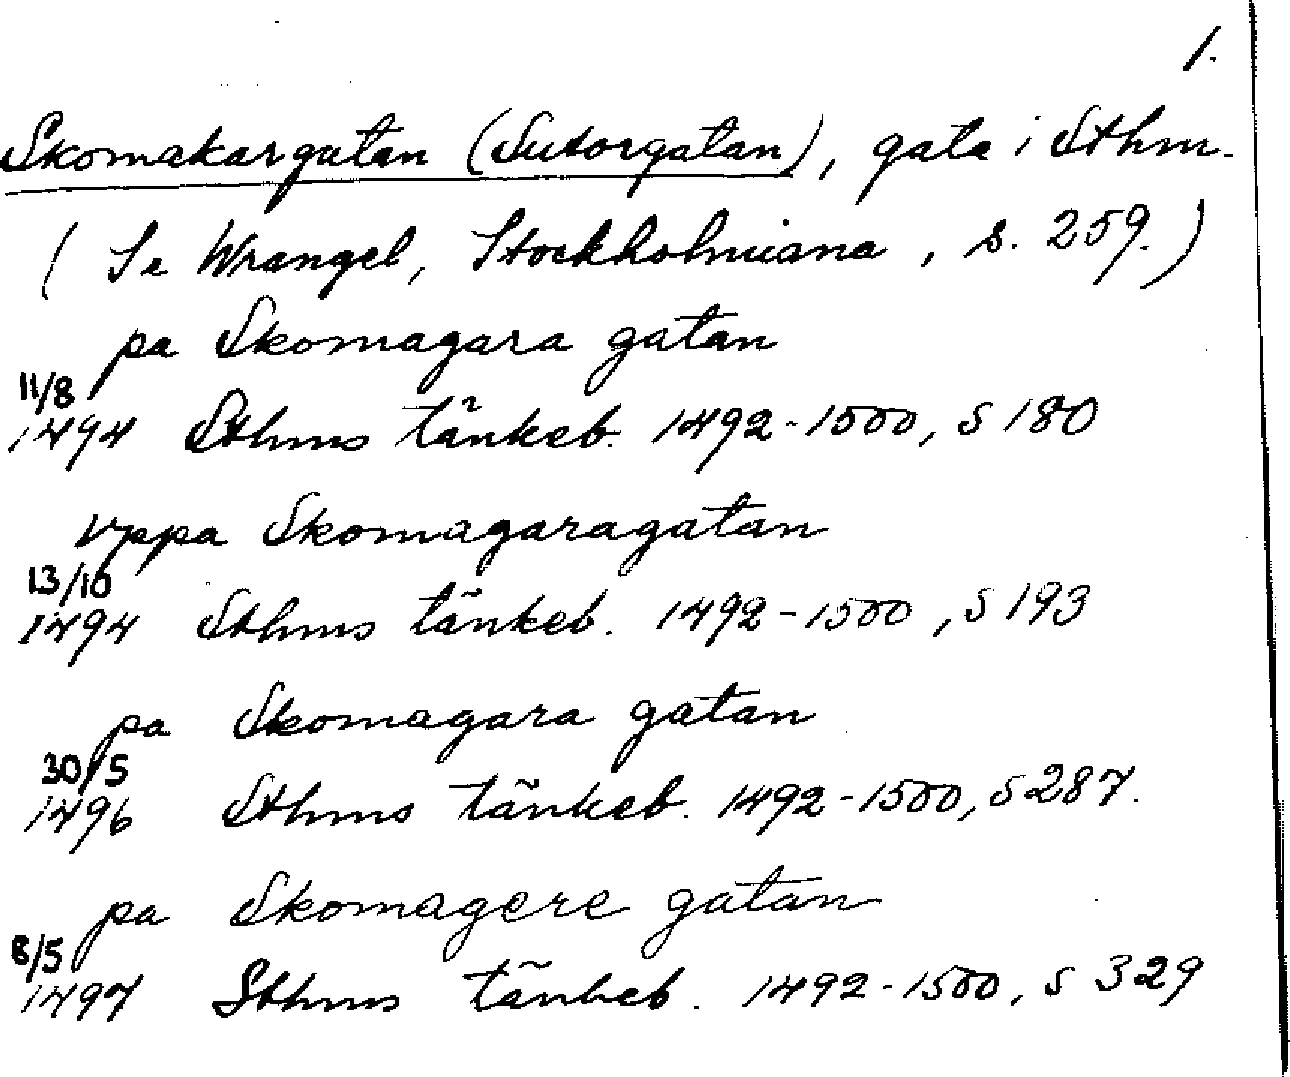 1.
Skomakargatan (Sutorgatan), gata i Sthm.
(Se Wrangel, Stockholmiana, s. 259.)
pa Skomagara gatan
11/8
1494 Sthms tänkeb. 1492-1500, s 180
vppa Skomagaragatan
13/10
1494 Sthms tänkeb. 1492-1500, s 193
pa Skomagara gatan
30/5
1496 Sthms tänkeb. 1492-1500, s 287.
pa Skomagere gatan
8/5
1497 Sthms tänkeb. 1492-1500, s 329